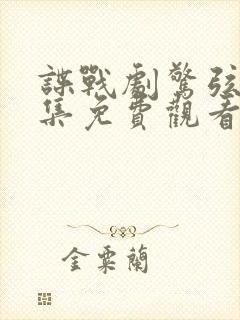 諜戰劇驚弦
集免費觀看
金粟蘭